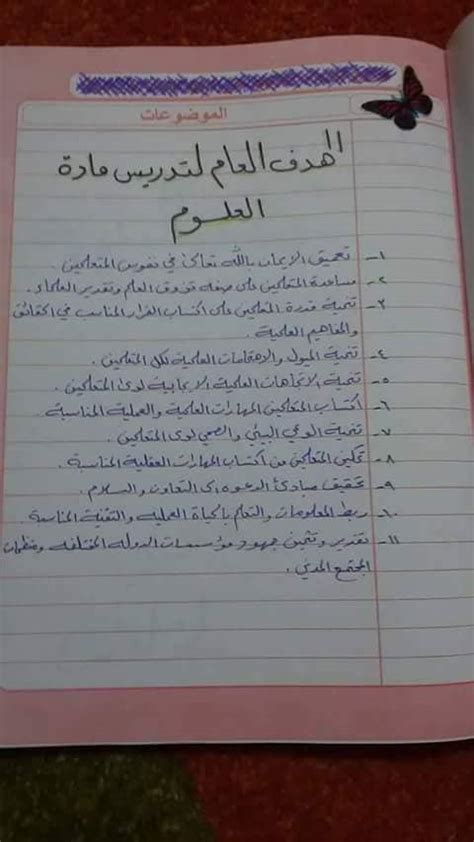 الموضوعات
الهدف العام لتدريس مادة
العلوم
١- تعميق الايمان بالله تعالى في نفوس المتعلمين .
٢- مساعدة المتعلمين على تذوق العلم وتقدير العلماء .
٣- تنمية قدرة المتعلمين على اكتساب القرار المناسب في الحقائق
والمفاهيم العلمية .
٤- تنمية الميول والاهتمامات العلمية لكل المتعلمين .
٥- تنمية الاتجاهات العلمية الايجابية لدى المتعلمين .
٦- اكتساب المتعلمين المهارات العلمية والعملية المناسبة .
٧- تنمية الوعي البيئي والصحي لدى المتعلمين .
٨- تمكين المتعلمين من اكتساب المهارات العقلية المناسبة .
٩- تحقيق مبادئ الدعوه الى التعاون والسلام .
١٠- ربط المعلومات والتعلم بالحياة العمليه والتقنية المناسبة .
١١- تقدير وتثمين جهود مؤسسات الدوله المختلفه ومنظمات
المجتمع المدني .